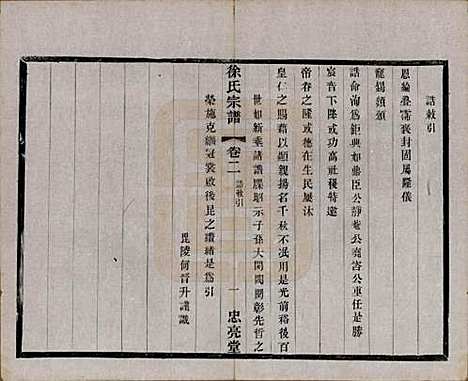 誥敕引
恩綸疊霈褒封固屬隆儀
寵錫頻頒
誥命洵爲鉅典如弗臣公靜巷公堯咨公重任是膺
宸音下降或功高社稷特邀
帝眷之隆或德在生民屢沐
皇仁之賜藉以顯親揚名千秋不泯用是光前裕後百
世如新彙諸譜牒昭示子孫大開閥閱彰先哲之
榮施克纘冠裳啟後昆之纘緒是爲引
毘陵何晉升謹識
徐氏宗譜
卷二
誥敕引
一
忠亮堂